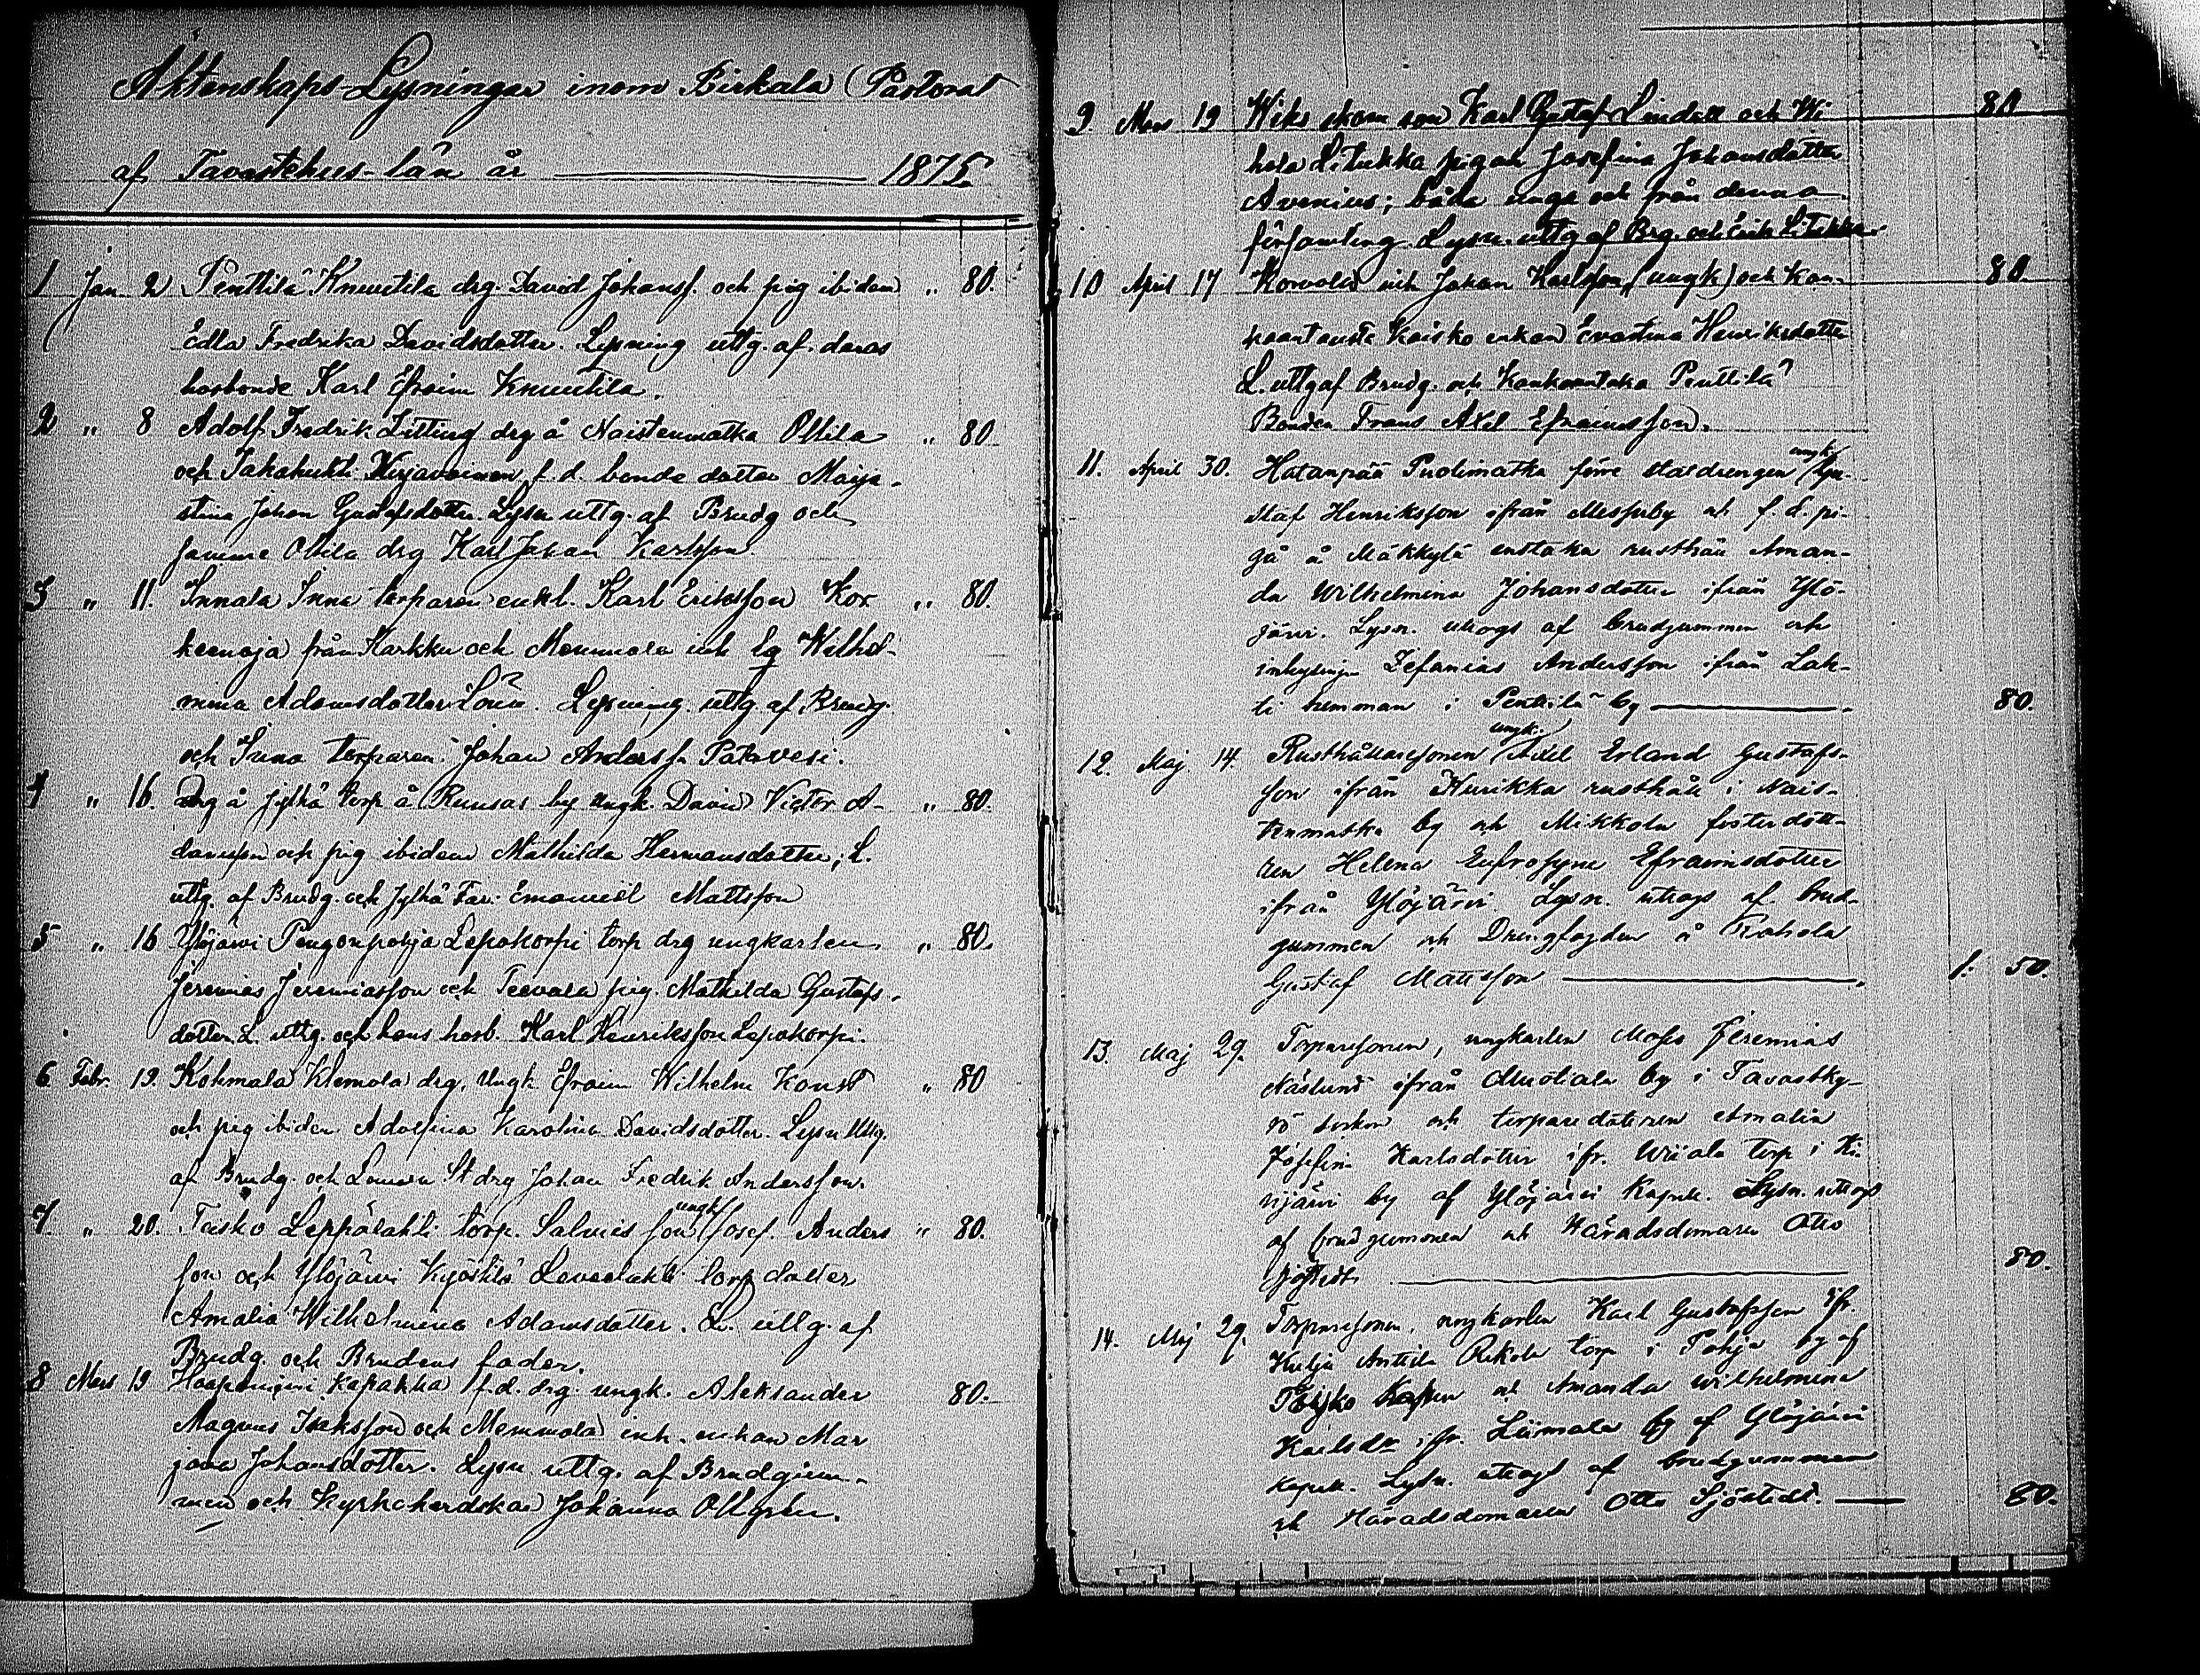 Äktenskaps-Lysningar inom Birkala Pastorat
af Tavastehus-län år 1875.
1 Jan. 2 Penttilä Knuutila drg. David Johansf. och pig ibidem " 80.
Edla Fredrika Davidsdotter. Lysning uttg. af deras
husbonde Karl Efraim Knuutila.
2 " 8 Adolf Fredrik Litting drg å Naistenmatka Ollila " 80
och f.d. bonde dotter Maja
stina Johan Gustafsdotter. Lysn uttg. af Brudg och
samme Ollila drg Karl Johan Karlsson
3 " 11. Innala Inna torparen enkl. Karl Eriksson Kor " 80.
keenoja från Karkku och Memmola inh lg Wilhel-
mina Adamsdotter. Lysning uttg. af Brudg.
och Inna torparen Johan Andersf. Patavesi.
4 " 16. drg å Jylhä torp å Runsas by ungk. David Victor A- " 80.
damsson och pig ibidem Mathilda Hermansdotter, L.
uttg. af Brudg. och Jylhä Emanuel Mattsson
5 " 16 Ylöjärvi Pengonpohja Lepokorpi torp drg ungkarlen " 80.
Jeremias Jeremiasson och Teevala pig. Mathilda Gustafs-
dotter. L. uttg. och hans hosb. Karl Henriksson Lepokorpi.
6. Febr. 19. Kohmala Klemola drg. Ungk Efraim Wilhelm Konst " 80
och pig ibidem Adolfina Karolina Davidsdotter. Lysn Uttg.
af Brudg. och St drg Johan Fredrik Andersson.
7 " 20. Taisko Leppälahti torp. Salmis son ungk Josef Anders " 80.
son och Ylöjärvi Kyöstilä torp dotter
Amalia Wilhelmina Adamsdotter. L. uttg. af
Brudg. och Brudens fader.
8 Mars 19 Haapaniemi Kapakka f.d. drg. ungk. Aleksander 80.
Magnus Isaksson och Memmola inh. enkan Mar
jana Johansdotter. Lysn uttg. af Brudgum-
men och Kyrkoherdskan Johanna Ollgren.
9. Mars 19 Wiks skom son Karl Gustaf Lindell och Wi 80
hola Litukka pigan Josefina Johansdotter
Avenius; båda unga och från denna
församling. Lysn. uttg af Brg. och Erik Litukka
10 April 17 Korvola inh Johan Karlsson (ungk) och Kan- 80.
kaantausta Kaisko enkan Evastina Henriksdotter
L. uttg af Brudg. och Kankaantaka Penttilä
Bonden Frans Axel Efraimsson.
11. April 30. Hatanpää Puolimatka förre staldrengen ungk. Gu-
staf Henriksson ifrån Messuby och f.d. pi-
ga å Mäkkylä enstaka rusthåll Aman-
da Wilhelmina Johansdotter ifrån Ylö-
järvi. Lysn. uttogs af brudgummen och
inhysing Zefanias Andersson ifrån Lah-
ti hemman i Penttilä by 80.
12. Maj. 14. Rusthållaresonen ungk. Axel Erland Gustafs-
son ifrån Kurikka rusthåll i Nais-
tenmatka by och Mikkola fosterdott-
ren Helena Eufrosyne Efraimsdotter
ifrån Ylöjärvi. Lysn. uttogs af brud-
gummen och Drengfogden å Kahola
Gustaf Mattsson 1: 50.
13. Maj 29. Torparesonen, ungkarlen Moses Jeremias
Näslund ifrån by i Tavastky-
rö socken och torparedottren Amalia
Josefina Karlsdotter ifr. torp i Ki-
rijärvi by af Ylöjärvi Kapell. Lysn. uttogs
af brudgummen och Häradsdomaren Otto
Sjöstedt. 80.
14. Maj 29. Torparesonen, ungkarlen Karl Gustafsson ifr.
Kulju Anttila torp i Pohja by af
och Amanda Wilhelmina
Karlsdr ifr. Liimala by af Ylöjärvi
Kapell. Lysn. uttogs af brudgummen
och Häradsdomaren Otto Sjöstedt. 80.